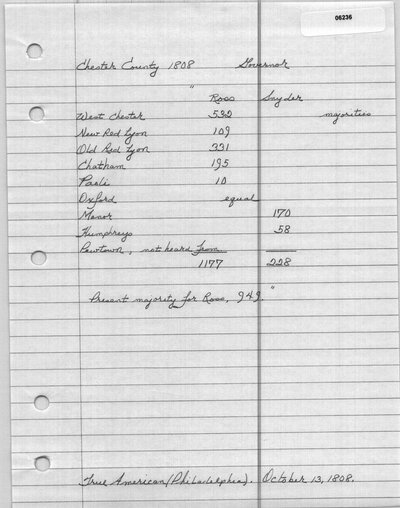 06236
Chester County 1808 Governor
"
Ross Snyder
West Chester 532 majorities
New Red Lyon 109
Old Red Lyon 331
Chatham 195
Paoli 10
Oxford equal
Manor 170
Humphreys 58
Pewtown, not heard from
1177 228
Present majority for Ross, 949. "
True American (Philadelphia). October 13, 1808.